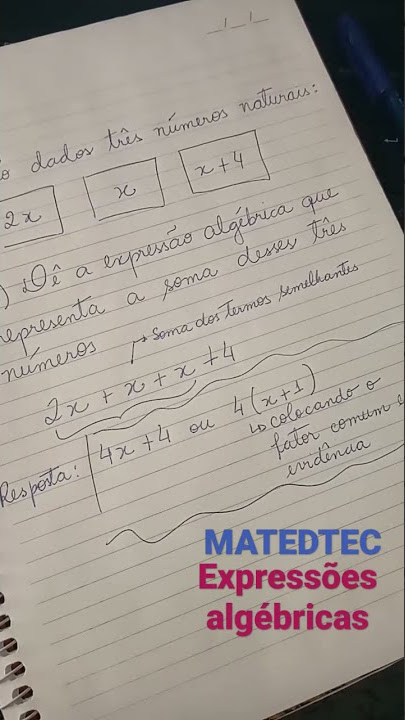 __/__/__
o dados três números naturais:
2x x x+4
) Dê a expressão algébrica que
representa a soma desses três
números
↱ Soma dos termos semelhantes
2x + x + x + 4
Resposta: 4x+4 ou 4(x+1)
↳ colocando o
fator comum e
evidência
MATEDTEC
Expressões
algébricas